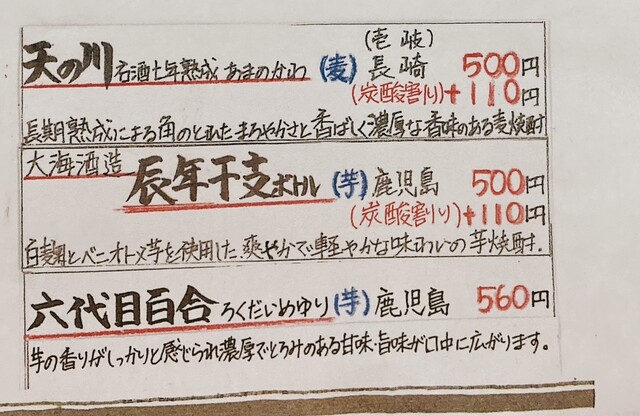 (壱岐)
天の川 古酒七年熟成 あまのがわ (麦) 長崎 500円
(炭酸割り)+110円
長期熟成による角のとれたまろやかさと香ばしく濃厚な香味のある麦焼酎
大海酒造 辰年干支ボトル (芋) 鹿児島 500円
(炭酸割り)+110円
白麹とベニオトメ芋を使用した爽やかで軽やかな味わいの芋焼酎.
六代目百合 ろくだいめゆり (芋) 鹿児島 560円
芋の香りがしっかりと感じられ濃厚でとろみのある甘味・旨味が口中に広がります。